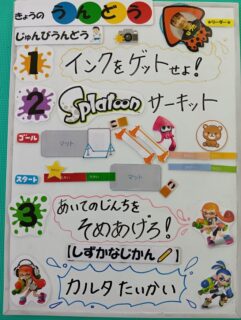 きょうの うんどう
★リーダー★
じゅんびうんどう
1 インクをゲットせよ!
2 Splatoon サーキット
ゴール
マット
スタート
マット
3 あいてのじんちを
そめあげろ!
[しずかなじかん]
カルタたいかい